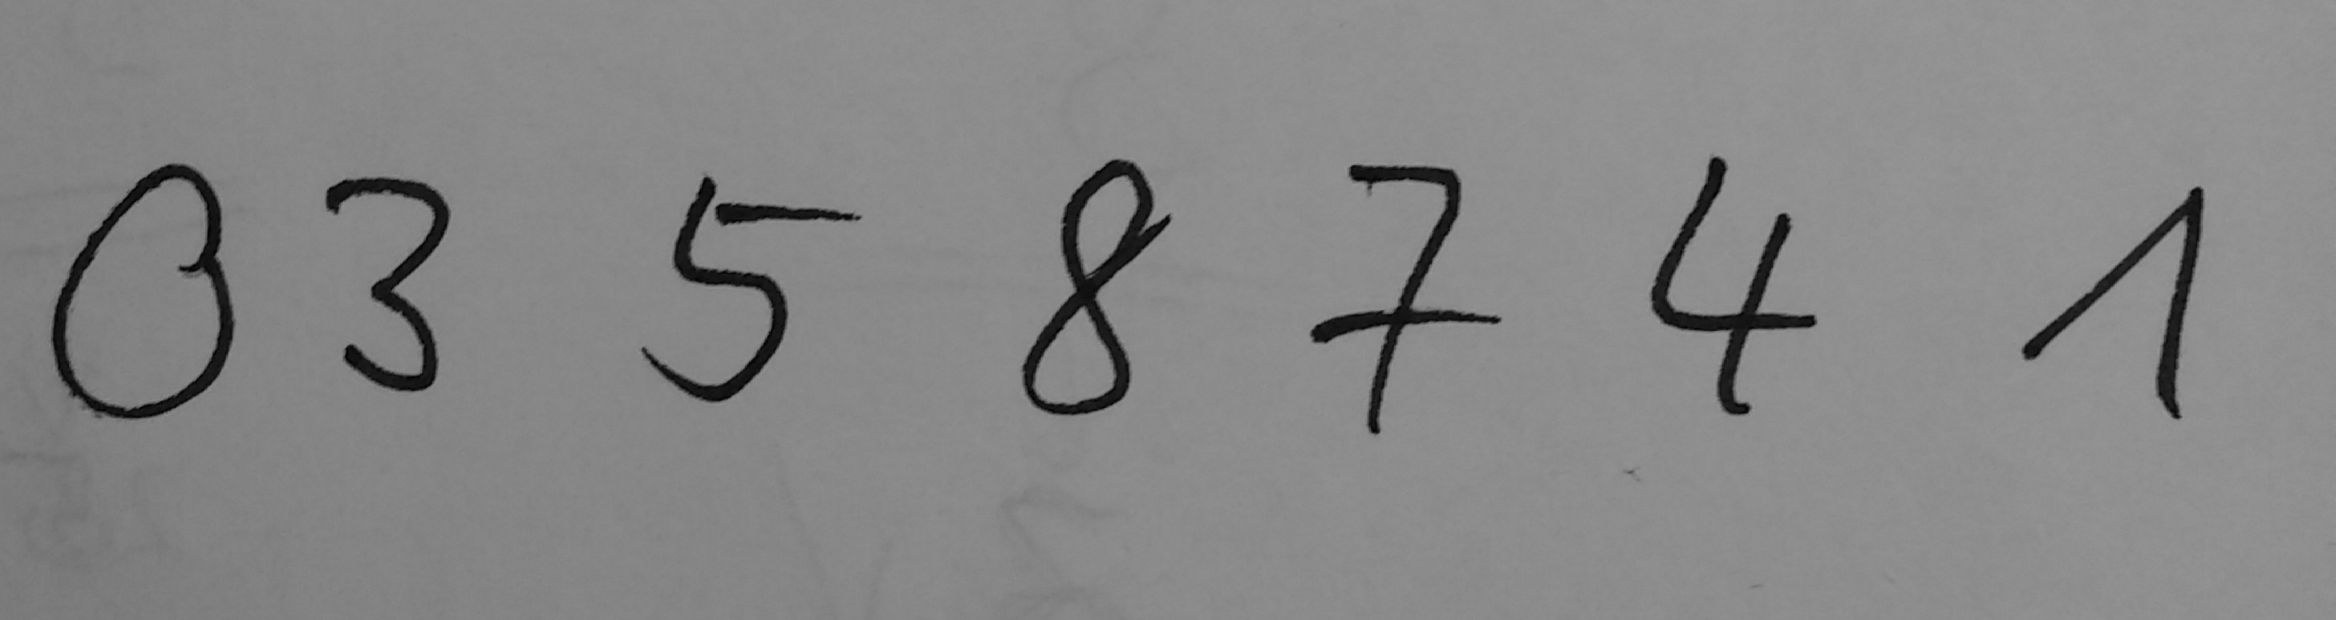 0 3 5 8 7 4 1